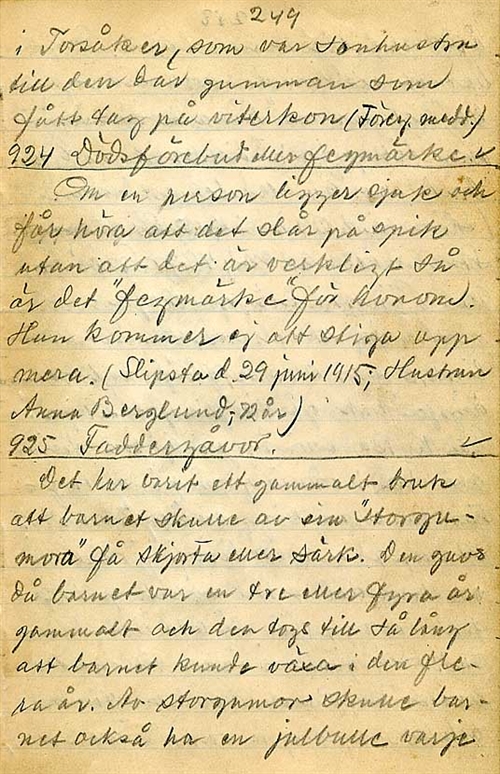 249
i Torsåker, som var sonhustru
till den där gumman som
fått tag på viterkon (Föreg. medd.)
924 Dödsförebud eller fegmärke. ✓
Om en person ligger sjuk och
får höra att det slår på spik
utan att det är verkligt så
är det "fegmärke" för honom.
Han kommer ej att stiga upp
mera. (Slipsta d. 29 juni 1915; Hustrun
Anna Berglund; 72 år)
925 Faddergåvor. ✓
Det har varit ett gammalt bruk
att barnet skulle av sin "storgu-
mora" få skjorta eller särk. Den gavs
då barnet var en tre eller fyra år
gammalt och den togs till så lång
att barnet kunde växa i den fle-
ra år. Av storgumor skulle bar-
net också ha en julbulle varje